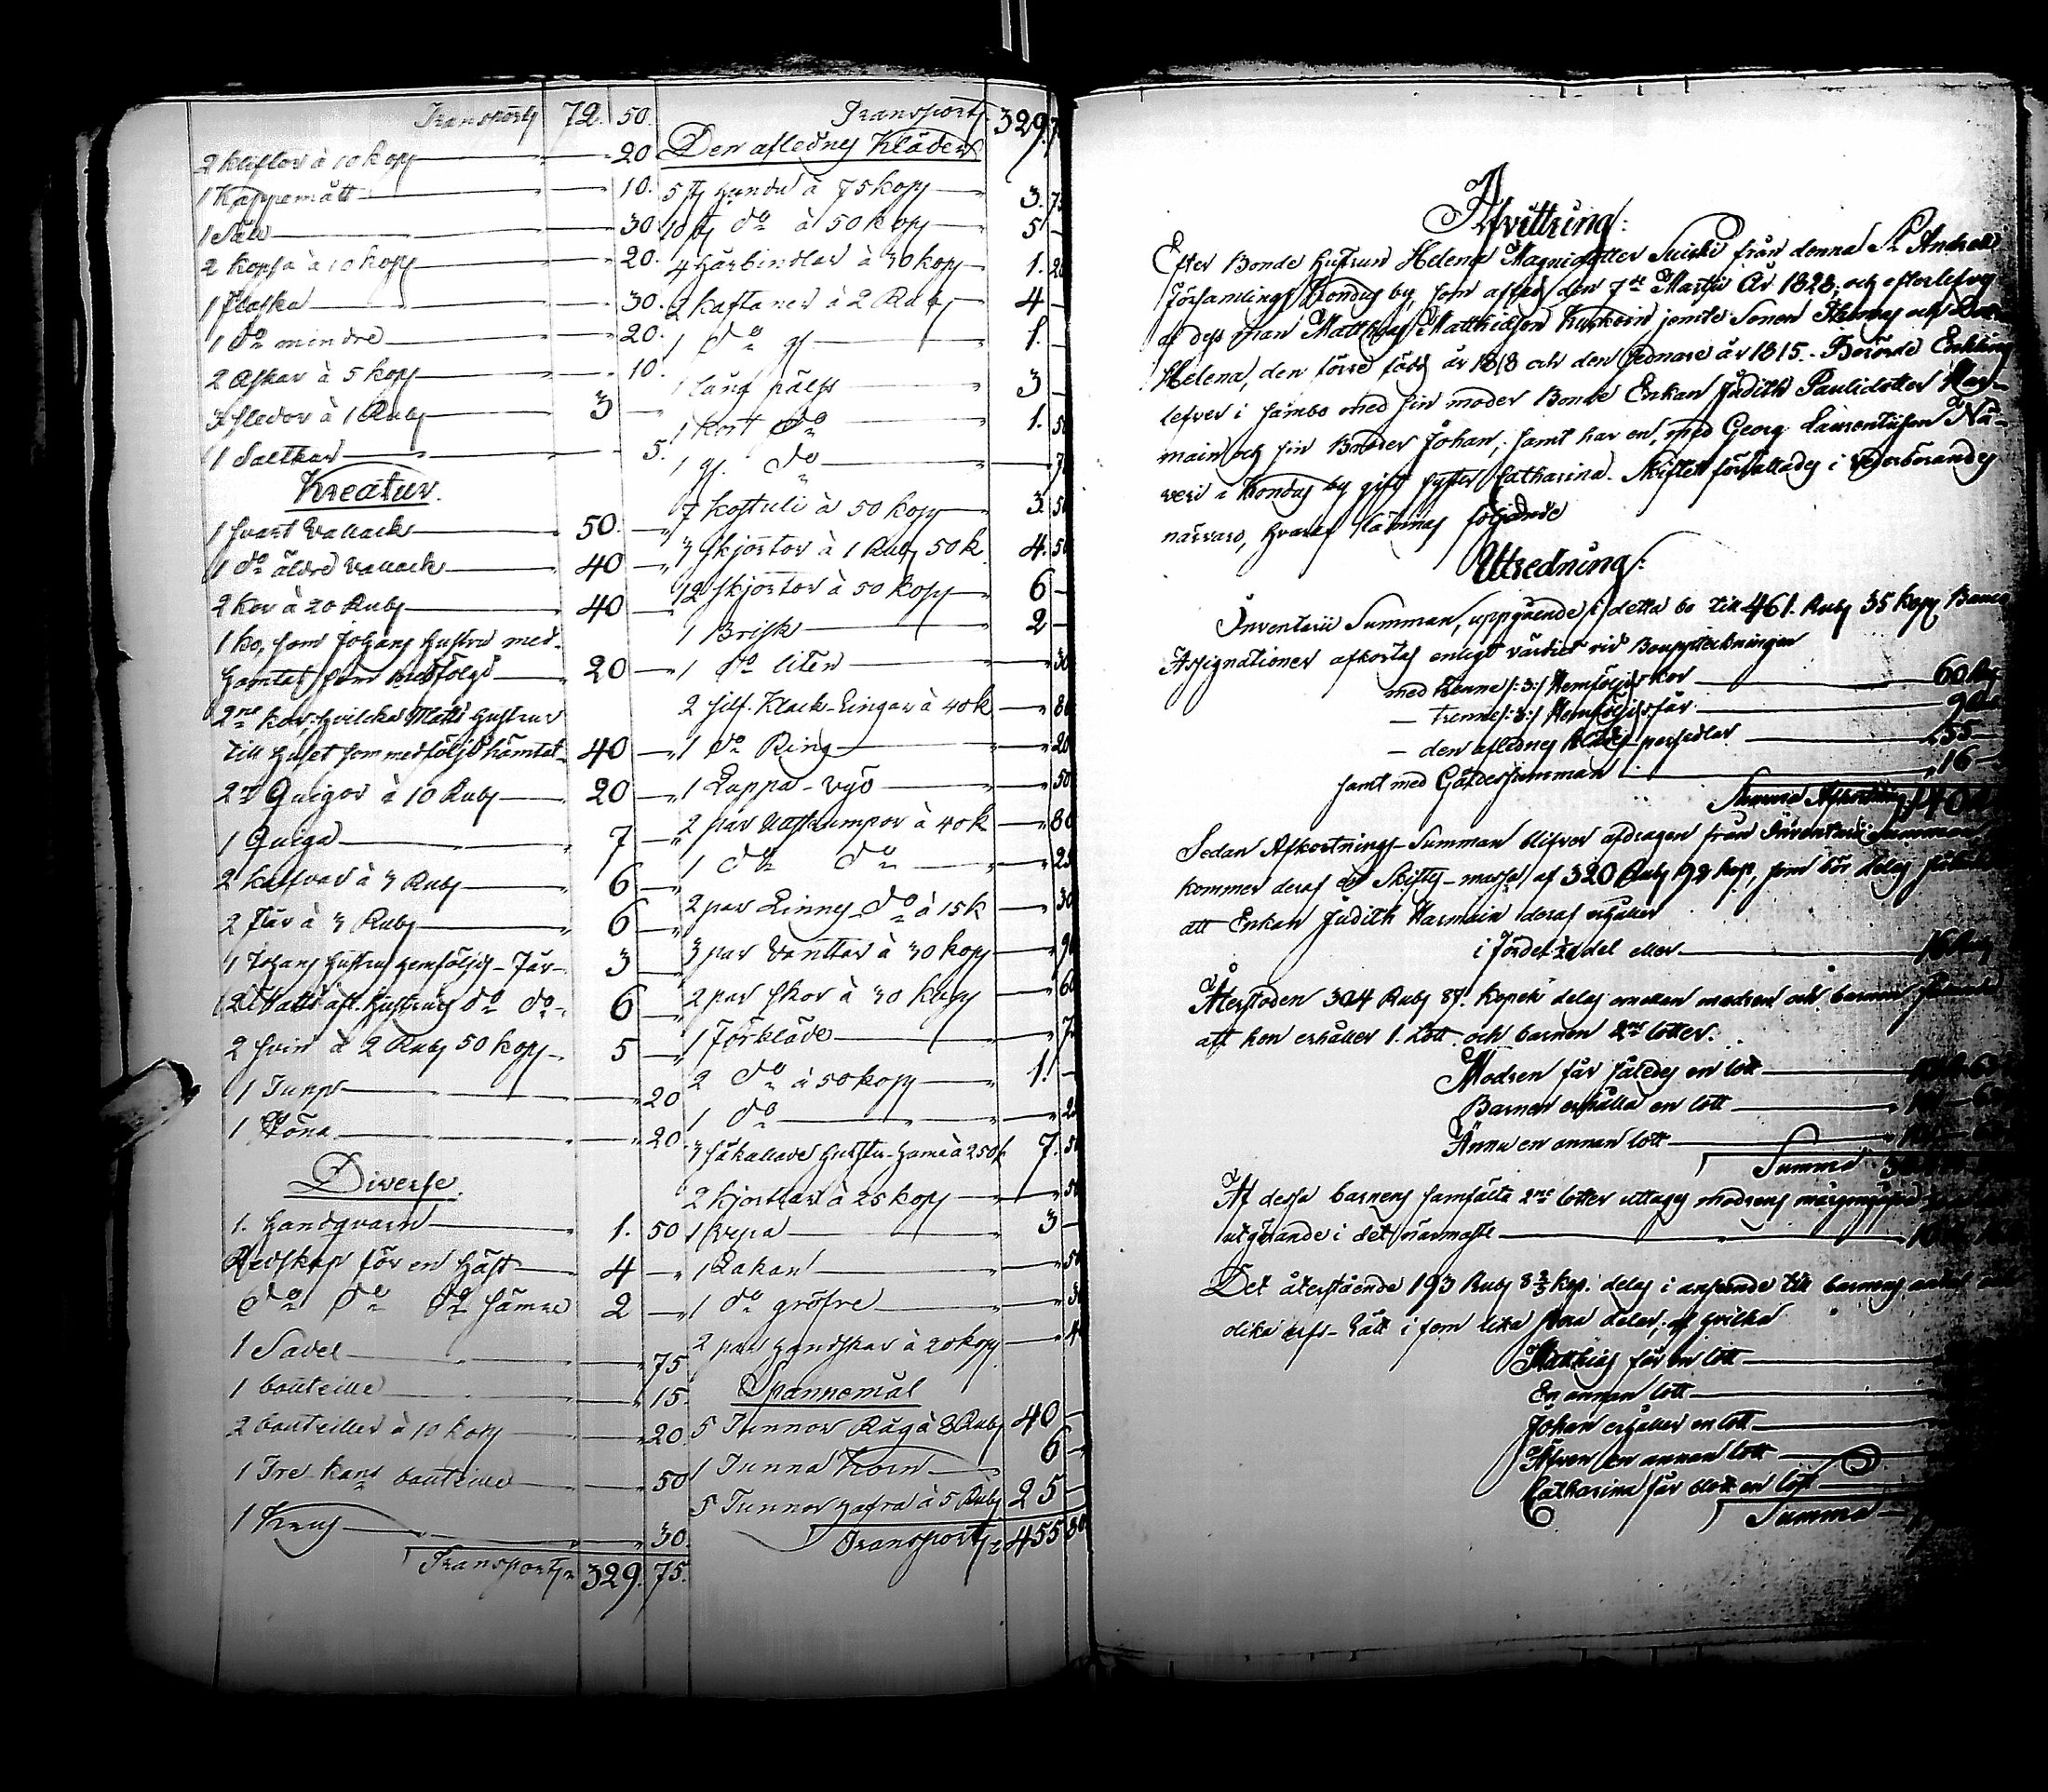 Transport 72. 50.
2 kaflor à 10 kop 20
1 Kappemått 10.
1 Såll 30
2 kopsa à 10 kop 20.
1 flaska 30.
1 do mindre 20.
2 Askar à 5 kop 10.
3 slädor à 1 Rub 3 —
1 Saltkar 5.
Kreatur.
1 svart Vallack 50. —
1 do äldre vallack 40 —
2 kor à 20 Rub 40 —
1 ko, som Johans hustru med-
hemtat som medfölgd 20 —
2ne kor, hvilcka Matts hustrur
till huset som medföljd hämtat 40 —
2ne Quigor à 10 Rub 20 —
1 Quiga 7 —
2 kalfvar à 3 Rub 6 —
2 Får à 3 Rub 6 —
1 Johans hustrus hemföljds-Får 3 —
2 Matts afl. hustrus do do 6 —
2 svin à 2 Rub 50 kop 5 —
1 Tupp 20
1 Höna 20.
Diverse.
1. Handqvarn 1. 50
Redskap för en häst 4 —
do do do sämre 2 —
1 Sadel 75
1 bouteille 15.
2 bouteiller à 10 kop 20.
1 Tre kans bouteille 50
1 Krus 30.
Transport 329. 75.
Transport 329. 7
Den aflednes Kläder
à 75 kop 3. 75
do à 50 kop 5 —
4 Hårbindlar à 30 kop 1. 20
2 kaftaner à 2 Rub 4 —
1 do gl 1. —
1 lång pälts 3 —
1 kort do 1. 50
1 gl. do 7
7 kostuli à 50 kop 3. 50
3 skjortor à 1 Rub 50 k 4. 50
12 skjortor à 50 kop 6 —
1 Brisk 2 —
1 do liten 30
2 silf. Klack-Ringar à 40 k 80
1 do Ring 20
1 Lappa-vyö 50
2 par à 40 k 80
1 do do 25
2 par Linnes do à 15 k 30
3 par vanttar à 30 kop 90
2 par skor à 30 kop 60
1 Förkläde 7
2 do à 50 kop 1. —
1 do 2
3 så kallade à 250 k 7. 50
2 kjortlar à 25 kop 50
1 Krepa 3 —
1 Lakan 50
1 do gröfre 3
2 par handskar à 20 kop 4
Spannemål
5 Tunnor Råg à 8 Rub 40 —
1 Tunna Korn 6 —
5 Tunnor hafra à 5 Rub 25 —
Transport 455 80
Afvittring:
Efter Bonde hustrun Helena Magnidotter Suikki från denna St Andreæ
församlings Kondus by, som afled den 7de Martii År 1828, och efterlefves
af dess man Matthias Matthiasson jemte Sonen och
Helena, den förre född år 1818 och den sednare år 1815. Berörde Enkling
lefver i sambo med sin moder Bonde Enkan Judith Paulidotter Har-
main och sin Broder Johan, samt har en, med Georg Laurentiison Nä-
veri i Kondus by gift syster Catharina. Skiftet författades i vederbörandes
närvaro, hvaraf lämnas följande
Utredning:
Inventarii Summan, uppgående i detta bo till 461. Rub 35 kop Banco
Assignationer afkortas enligt värdict vid Bouppteckningen
med trenne /:3:/ Hemföljds kor 60 Rub
— trenne /:3:/ Hemföljds får 9
— den aflednes kläds-persedlar 55
samt med Gäldessumman 16 —
Summa Afkortning 140
Sedan Afkortnings-Summan blifver afdragen från Inventarii summan
kommer deraf en Skiftes-massa af 320 Rub kop, som bör delas
att Enkan Judith Harmain deraf erhåller
i fördel del eller 16
Återstoden 304 Rub 87. kopek delas emellan modren och barnen
att hon erhåller 1. Lott och barnen 2ne lotter.
Modren får således en lott
Barnen erhålla en lott
Ännu en annan lott
Summa
Af dessa barnens samfälta 2ne lotter uttages modrens morgongåfva
utgörande i det närmaste
Det återstående 193 Rub 8 kop. delas i anseende till barnens antal och
olika arfs-Rätt i fem lika stora delar, af hvilka
Matthias får en lott
En annan lott
Johan erhåller en lott
Även en annan lott
Catharina får blott en lott
Summa